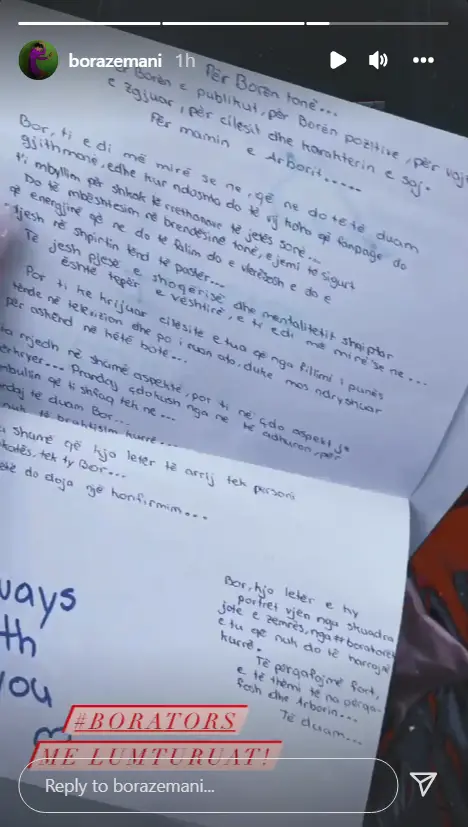 borazemani 1h
Për Borën tonë...
Për Borën e publikut, për Borën pozitive, për vajz
e zgjuar, për cilësit dhe karakterin e saj.
Për mamin e Arborit.....
Bor, ti e di më mirë se ne, që ne do të të duam
gjithmonë, edhe kur ndoshta do të vij koha që fanpage do
ti mbyllim për shkak të rrethanave të jetës sonë...
Do të mbështesim në brendësinë tonë, e jemi të sigurt
që energjinë që ne do të falim do e vlerësosh e do e
djesh në shpirtin tënd të pastër...
Të jesh pjesë e shoqërisë dhe mentalitetit shqiptar
është tepër e vështirë, e ti edi më mirë se ne...
Por ti ke krijuar cilësitë e tua që nga fillimi i punës
tënde në televizion dhe po i ruan ato, duke mos ndryshuar
për askënd në këtë botë...
ta njedh në shumë aspekte, por ti në çdo aspekt je
Prandaj çdokush nga ne të adhuron, për
që ti shfaq tek ne...
të duam Bor...
nuk të braktisim kurrë...
shumë që kjo letër të arrij tek personi
tek ty Bor...
do doja një konfirmim...
ways
th
you
Bor, kjo letër e ky
portret vjen nga skuadra
jote e zemrës, nga #boratorët
e tu që nuk do të harrojnë
kurrë.
Të përqafojmë fort,
e të thëmi të na përqa-
fosh dhe Arborin...
Të duam...
#BORATORS
ME LUMTURUAT!
Reply to borazemani...